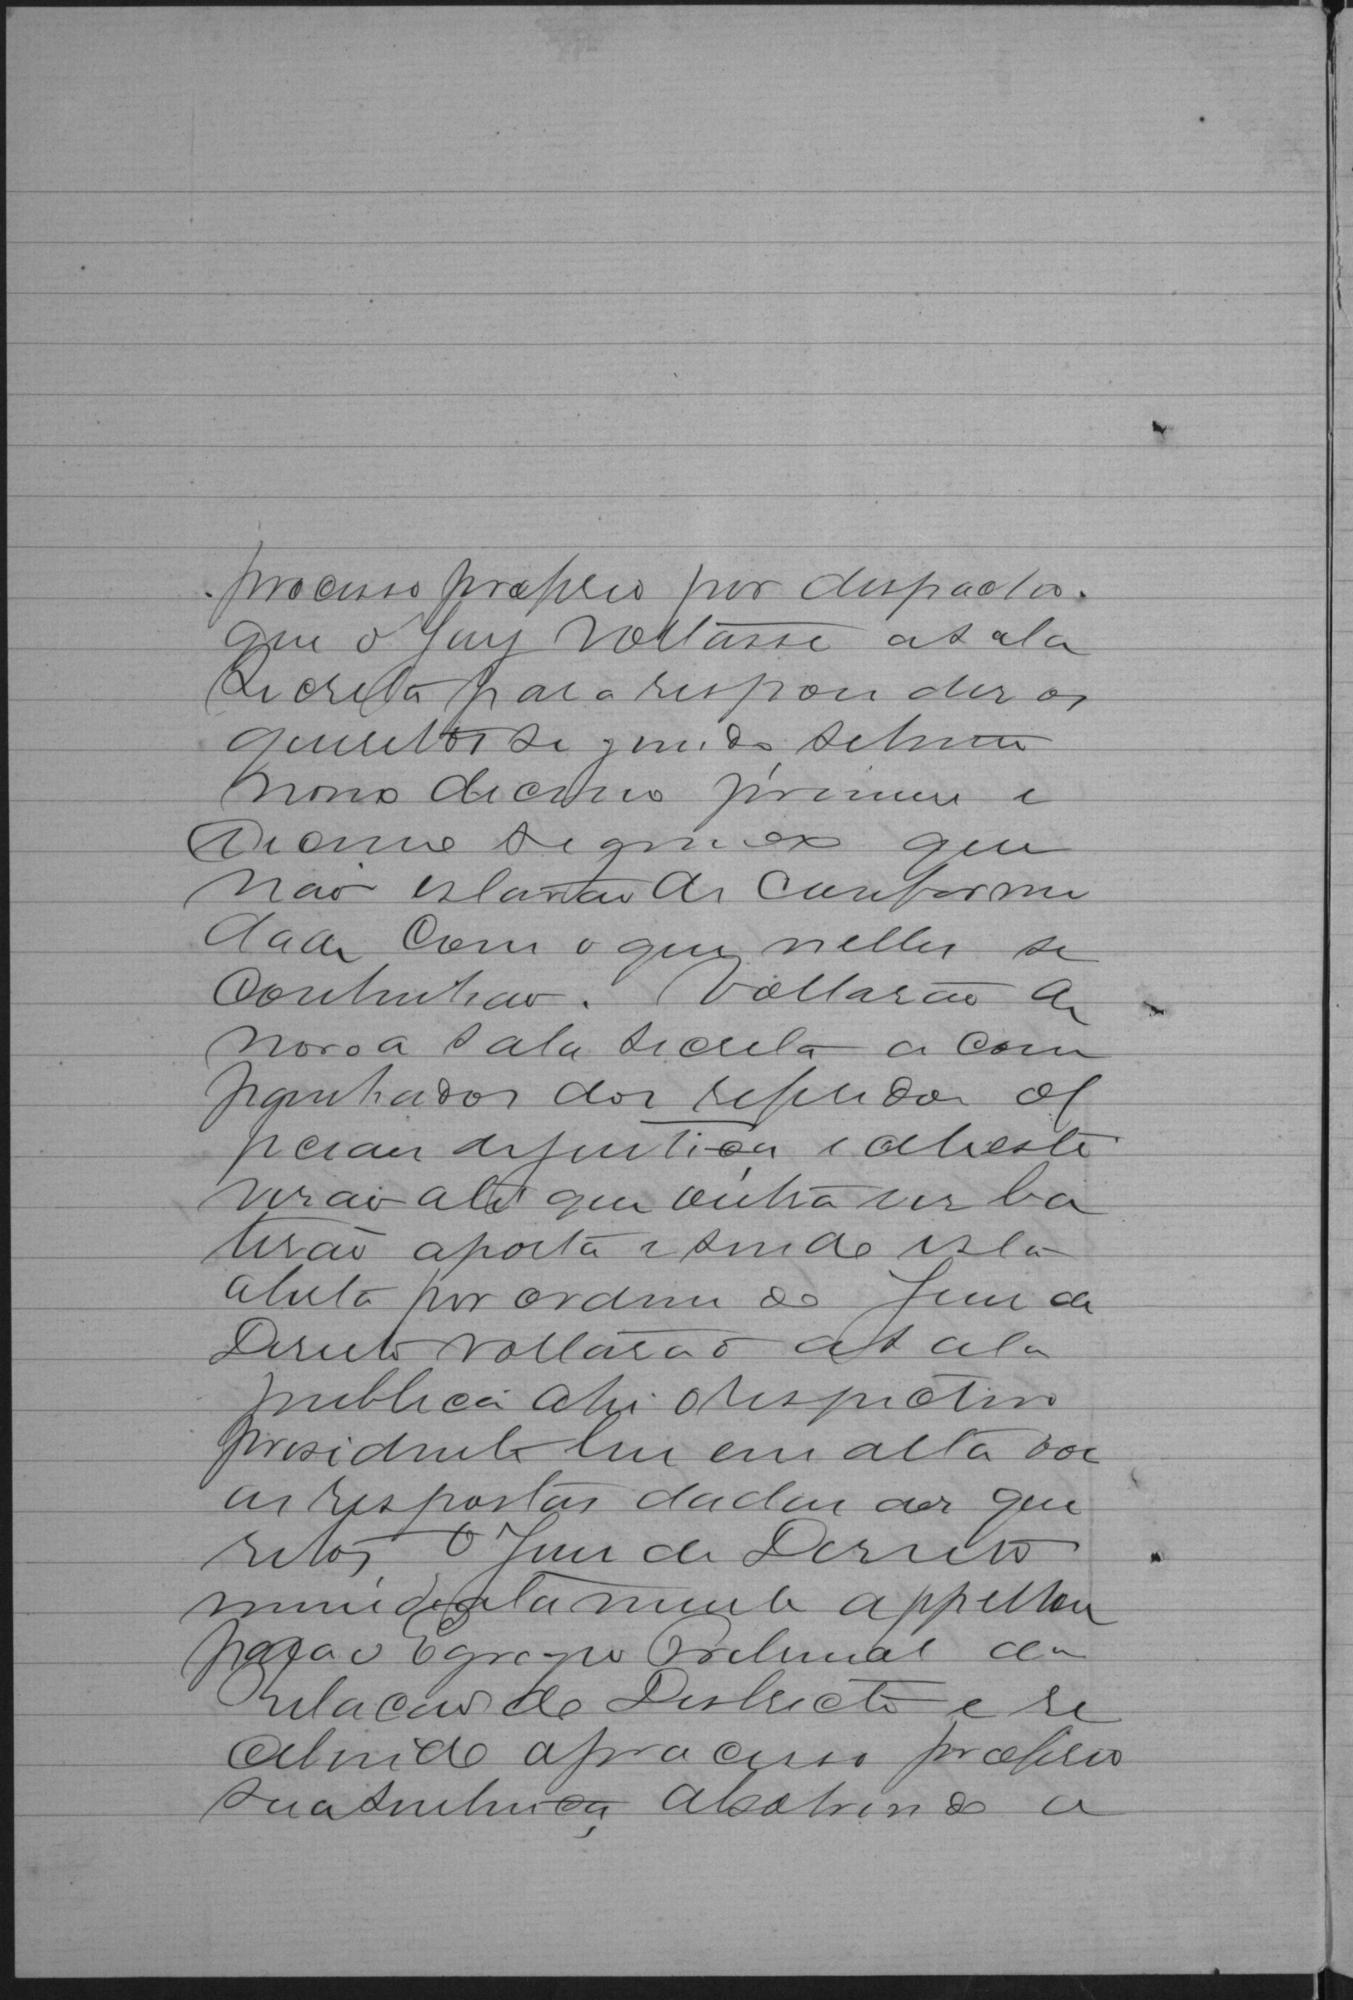 processo proprio por despacho.
que o Jury voltasse a sala
Secreta para responder os
quesitos segundo, setimo
nono decimo primeiro e
decimo segundo que
não estavão de conforme
dade com o que nelles se
continhão. Voltarão de
novo a sala secreta acom
panhados dos referidos of
ficiaes de justiça e ahi este
verão até que outra vez ba
terão a porta e sendo esta
aberta por ordem do Juiz de
Direito voltarão a sala
publica ahi o respectivo
presidente leu em alta voz
as respostas dadas aos que
sitos, O Juiz de Direito
immediatamente appellou
para o Egregio Tribunal da
Relacão do Districto e re
colhido a processo proprio
sua sentença absolvendo a